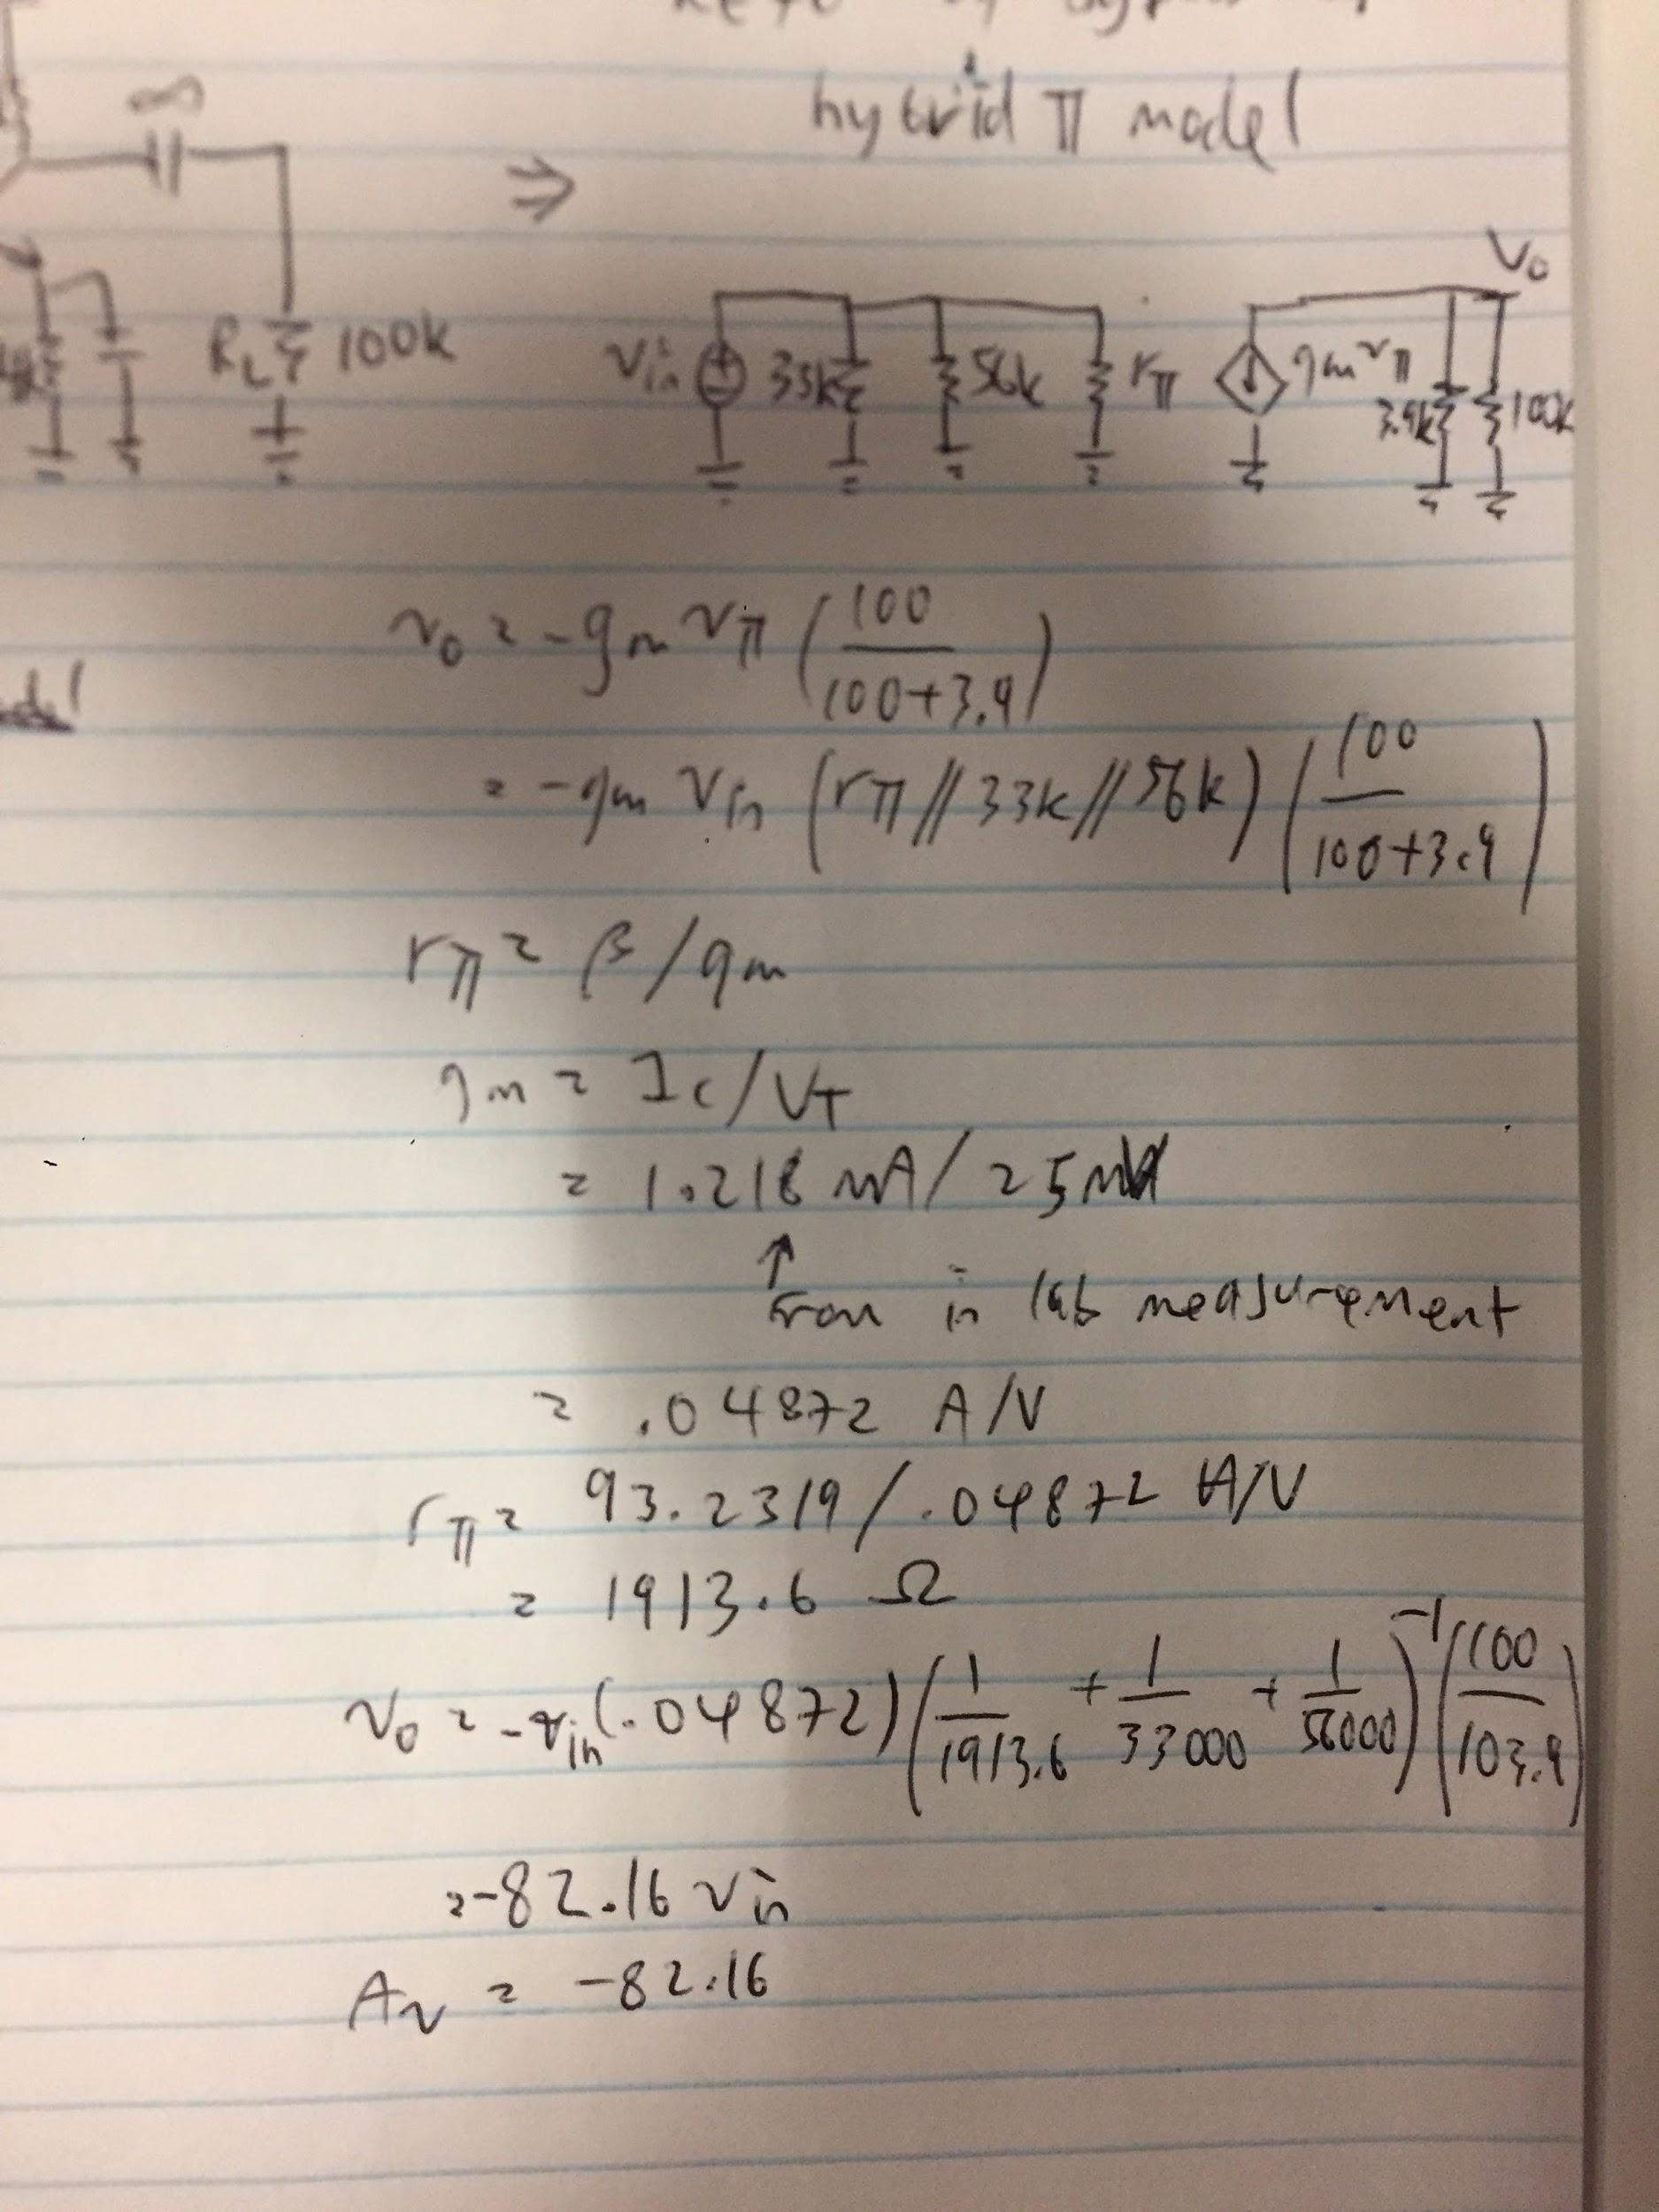 hybrid π model
∞
RL 100k
Vin 33k 56k rπ gm vπ 3.9k 100k
Vo
vo = -gm vπ (100/(100+3.9))
= -gm Vin (rπ // 33k // 56k) (100/(100+3.9))
rπ = β/gm
gm = Ic/VT
= 1.218 mA/25mV
↑
from in lab measurement
= .04872 A/V
rπ = 93.2319/.04872 A/V
= 1913.6 Ω
vo = -vin(.04872)(1/1913.6 + 1/33000 + 1/56000)^-1 (100/103.9)
= -82.16 vin
Av = -82.16